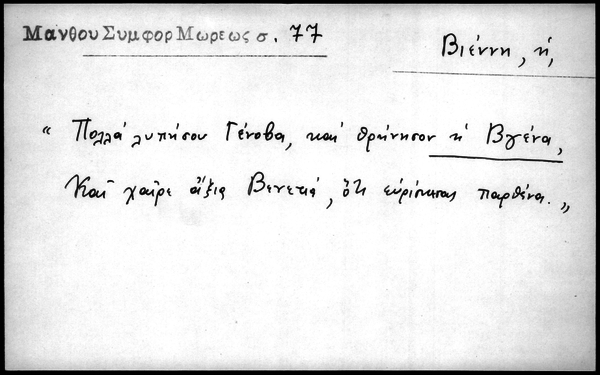 Μανθου Συμφορ Μωρεως σ. 77
Βιέννη, ἡ,
“ Πολλά λυπήσου Γένοβα, καί θρήνησον ἡ Βγένα,
Καί χαῖρε ἄξια Βενετιά, ὅτι εὑρίσκεσαι παρθένα. „